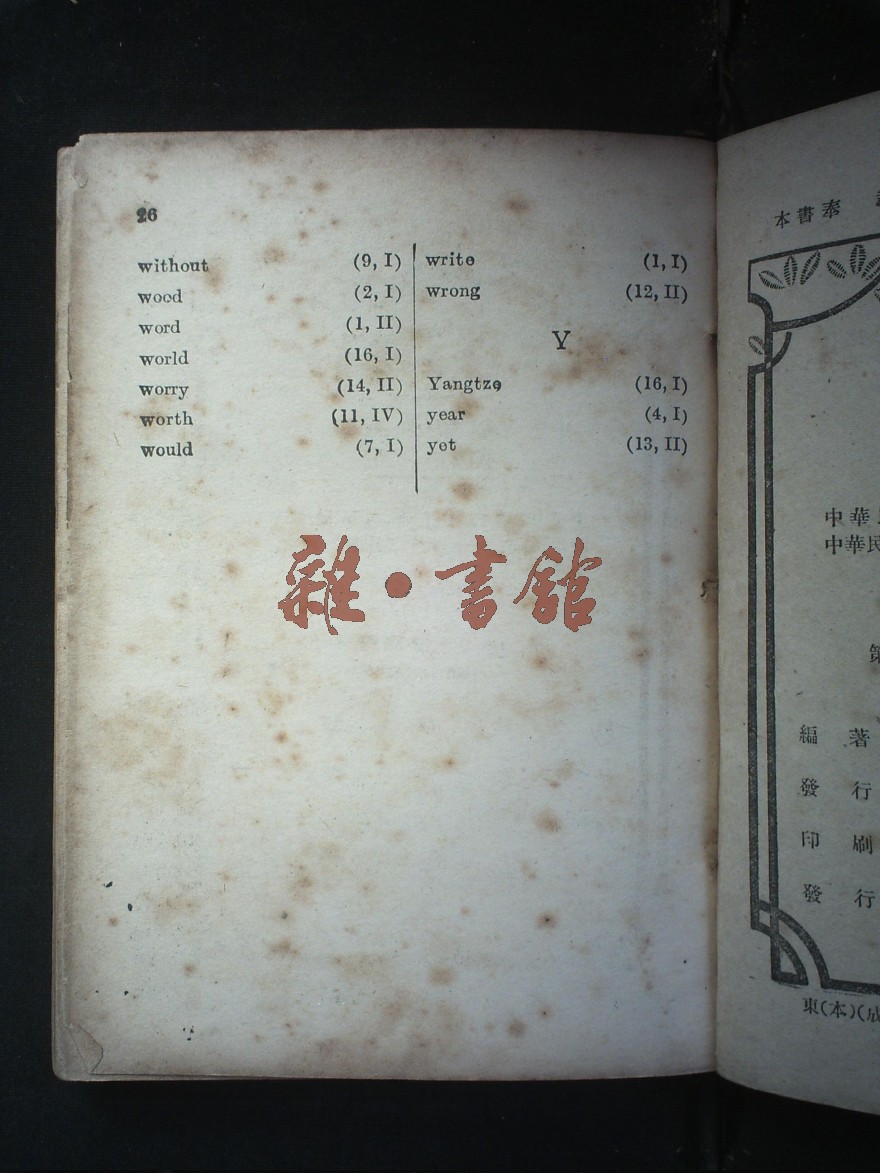 26
without (9, I)
wood (2, I)
word (1, II)
world (16, I)
worry (14, II)
worth (11, IV)
would (7, I)
write (1, I)
wrong (12, II)
Y
Yangtze (16, I)
year (4, I)
yet (13, II)
雜·書館
本書奉
中華
中華民
第
編著
發行
印刷
發行
東(本)(成